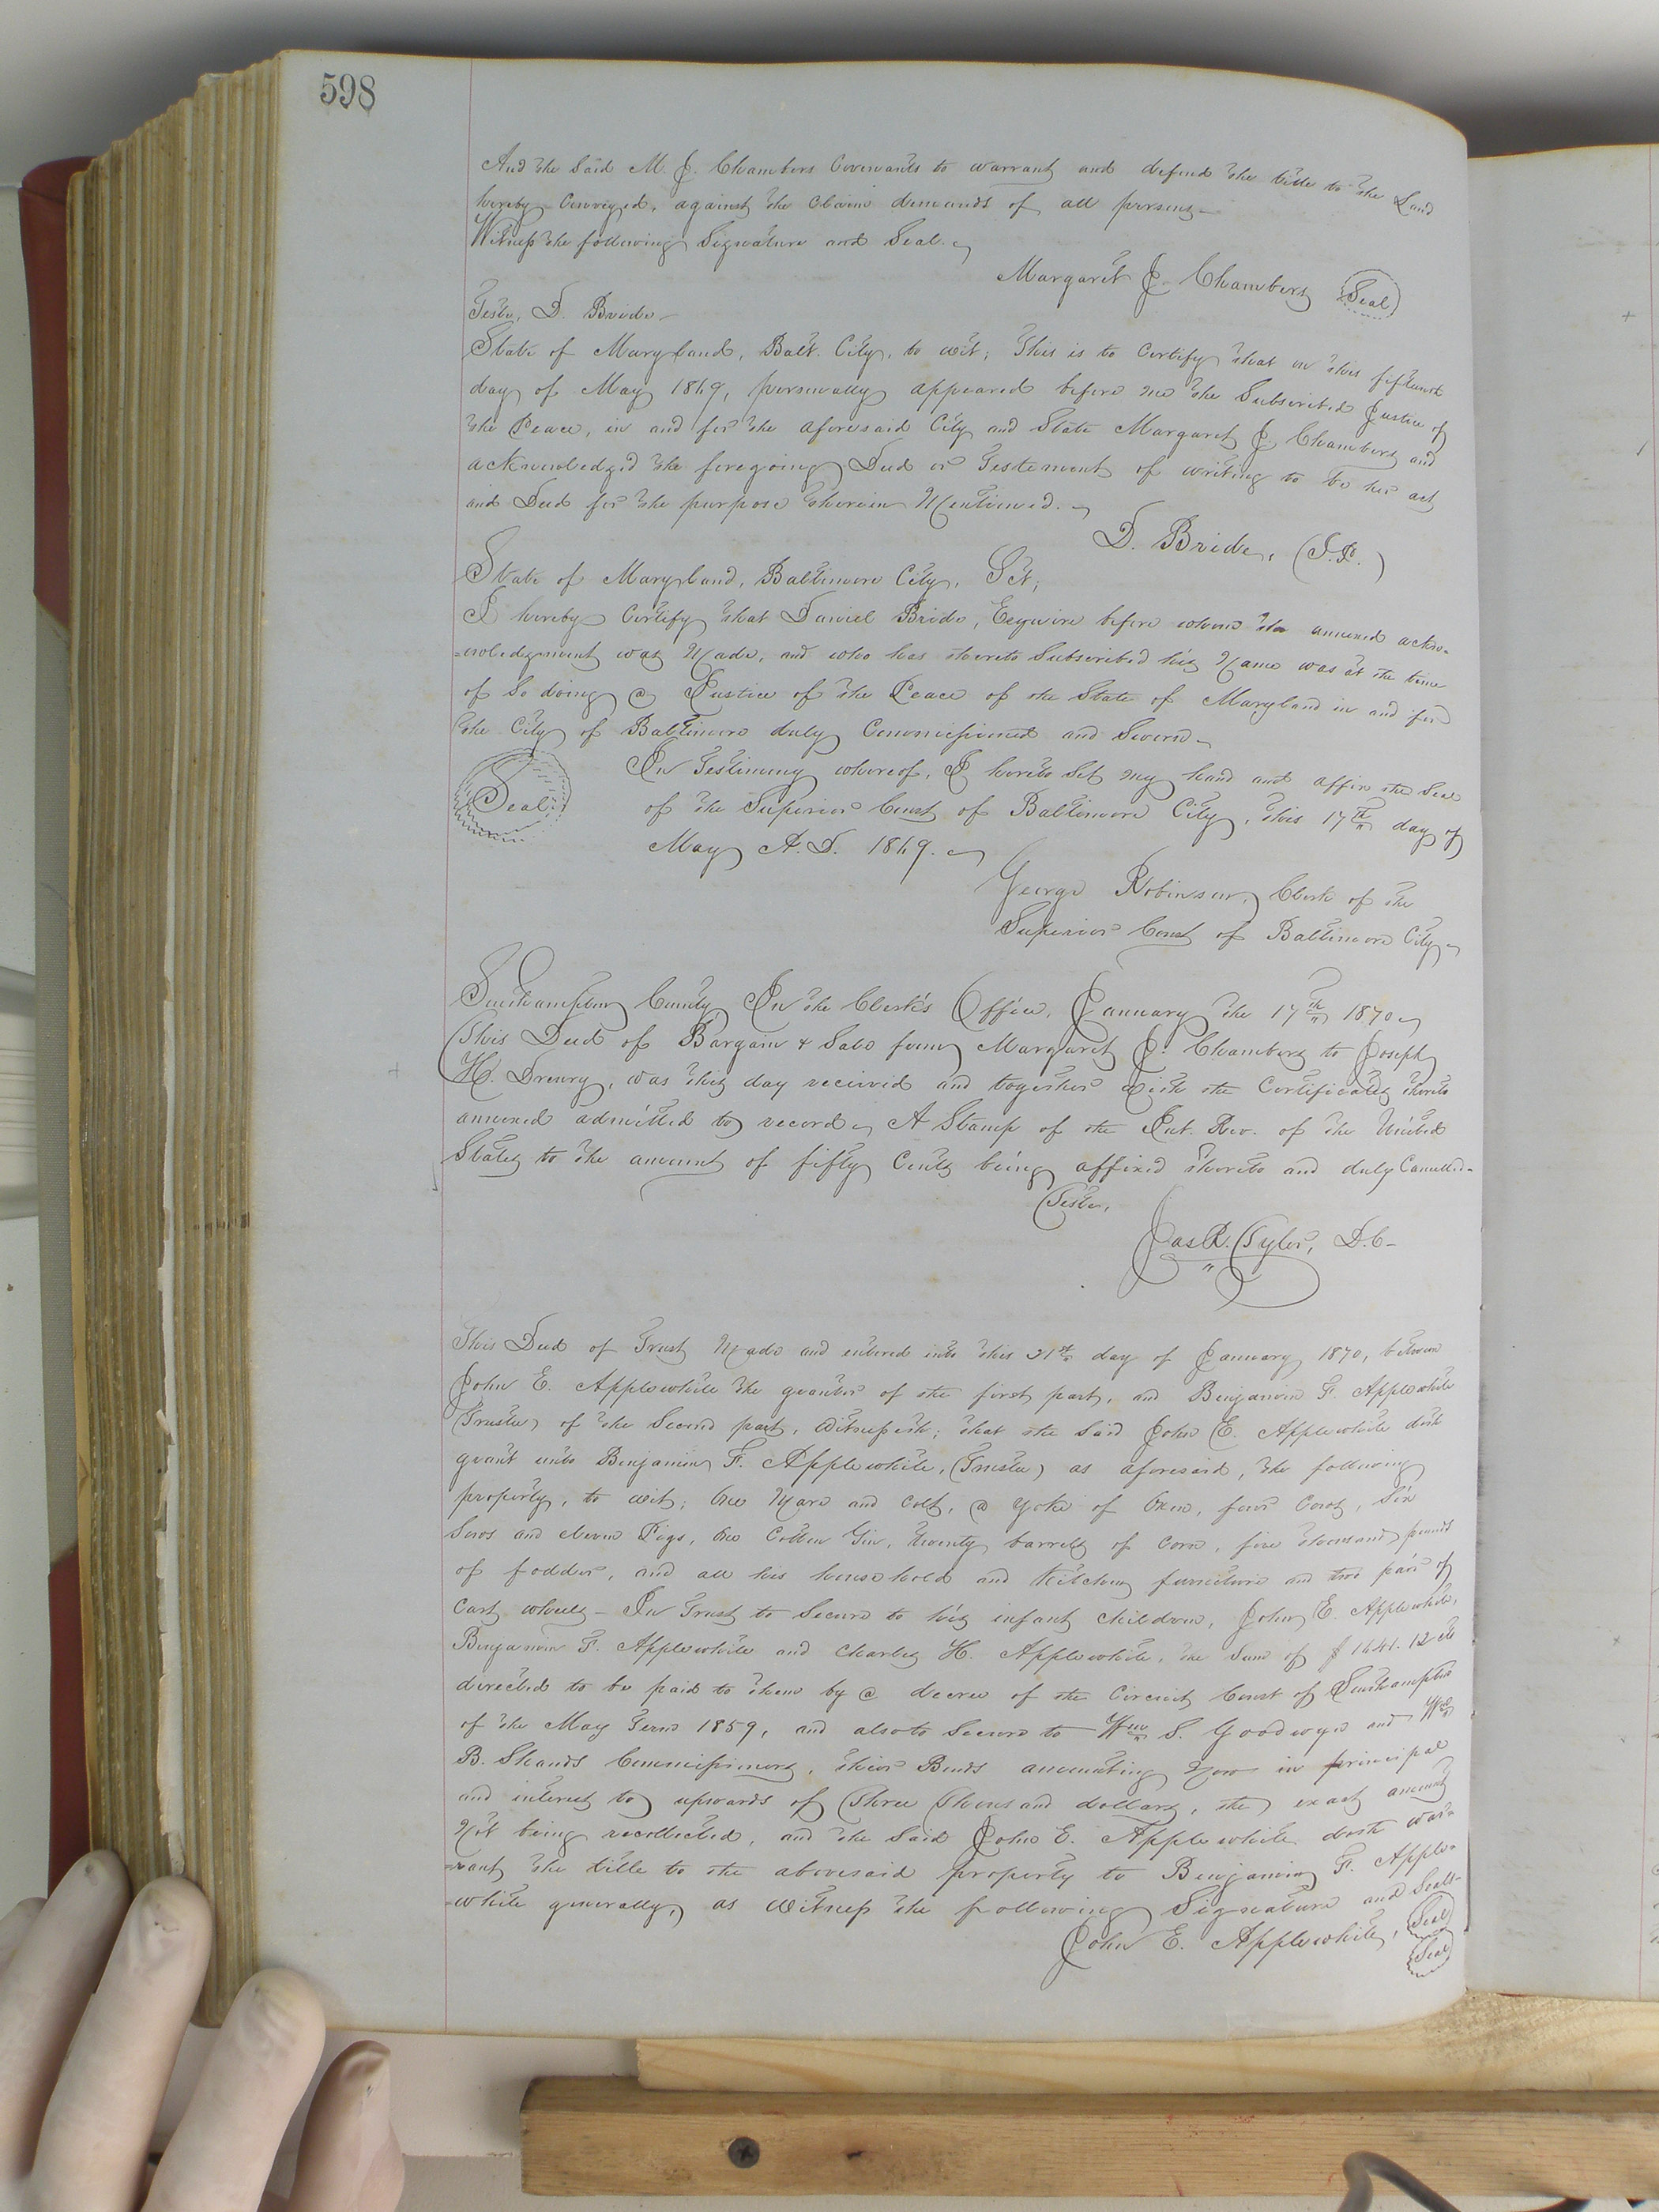 598
And the Said M. J. Chambers Covenants to warrant and defend the title to the Land
hereby Conveyed, against the Claim demands of all persons
Witness the following Signature and Seal.
Margaret J. Chambers Seal
Teste, D. Bride
State of Maryland, Balt. City, to wit; This is to Certify that on this fifteenth
day of May 1869, personally appeared before me the Subscribed Justice of
the Peace, in and for the aforesaid City and State Margaret J Chambers and
acknowledged the foregoing Deed or Testement of writing to be her act
and Deed for the purpose therein Mentioned.
D. Bride, (J.P.)
State of Maryland, Baltimore City, Sct;
I hereby Certify that Daniel Bride, Esquire before whom the annexed ackno-
-wledgement was Made, and who has thereto Subscribed his Name was at the time
of So doing a Justice of the Peace of the State of Maryland in and for
the City of Baltimore duly Commissioned and Sworn
In Testimony whereof, I hereto Set my hand and affix the Seal
Seal
of the Superior Court of Baltimore City, this 17th day of
May A.D. 1869.
George Robinson, Clerk of the
Superior Court of Baltimore City
Southampton County, In the Clerk's Office, January the 17th 1870
This Deed of Bargain & Sale from Margaret J. Chambers to Joseph
H. Drewry, was this day received and together with the Certificates thereto
annexed admitted to record A Stamp of the Int. Rev. of the United
States to the amount of fifty Cents being affixed thereto and duly Cancelled-
Teste,
Jas R. Tyler, D.C-
This Deed of Trust Made and entered into this 21st day of January 1870, between
John E. Applewhite the grantor of the first part, and Benjamin F. Applewhite
(Trustee) of the Second part, Witnesseth; that the Said John E. Applewhite doth
grant unto Benjamin F. Applewhite, (Trustee) as aforesaid, the following
property, to wit; One Mare and Colt, a Yoke of Oxen, four Cows, Six
Sows and eleven Pigs, One Cotton Gin, twenty barrels of Corn, five thousand pounds
of fodder, and all his household and Kitchen furniture and two pair of
Cart wheels - In Trust to Secure to his infant children, John E. Applewhite,
Benjamin F. Applewhite and Charles H. Applewhite, the Sum of $ 1641.12 cts
directed to be paid to them by a decree of the Circuit Court of Southampton
of the May Term 1859, and also to Secure to Wm S. Goodwyn and Wm
B. Shands Commissioners, their Bonds amounting Now in principal
and interest to upwards of Three Thousand dollars, the exact amount
Not being recollected, and the Said John E. Applewhite doth war-
-rant the title to the abovesaid property to Benjamin F. Apple-
-white generally, as Witness the following Signature and Seals-
John E. Applewhite, Seal
Seal